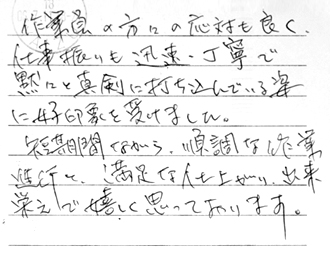 作業員の方々の応対も良く、
仕事振りも迅速・丁寧で
黙々と真剣に打ち込んでいる姿
に好印象を受けました。
短期間ながら、順調な作業
進行と、満足な仕上がり、出来
栄えで嬉しく思っております。